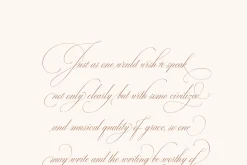 Just as one would wish to speak
not only clearly, but with some civilized
and musical quality of grace, so one
may write and the writing be worthy of